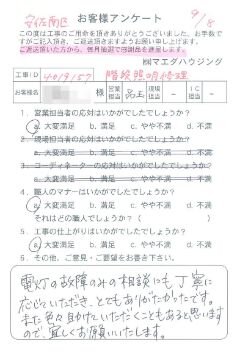 安佐南区 お客様アンケート 9/8
この度は工事のご用命を頂きありがとうございました。お手数で
すがご記入頂き、ご返送頂きますようお願い申し上げます。
ご返送頂いた方から、毎月抽選で感謝品を進呈します。
㈱マエダハウジング
工事ID 4019157 階段照明修理
お客様名 様 営業担当 担当 現場担当 - IC担当 -
1. 営業担当者の応対はいかがでしたでしょうか?
a. 大変満足 b. 満足 c. やや不満 d. 不満
2. 現場担当者の応対はいかがでしたでしょうか?
a. 大変満足 b. 満足 c. やや不満 d. 不満
3. コーディネーターの応対はいかがでしたでしょうか?
a. 大変満足 b. 満足 c. やや不満 d. 不満
4. 職人のマナーはいかがでしたでしょうか?
a. 大変満足 b. 満足 c. やや不満 d. 不満
それはどの職人でしょうか?( )
5. 工事の仕上がりはいかがでしたでしょうか?
a. 大変満足 b. 満足 c. やや不満 d. 不満
6. その他、ご意見・ご要望をお書き下さい。
電灯の故障のみの相談にも丁寧に
応じていただき、とてもありがたかったです。
また色々助けていただくこともあると思います
ので、宜しくお願いいたします。